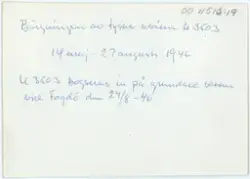 Bärgningen av tyska ubåten U 3503
14 maj - 27 augusti 1946
U 3503 bogseras in på grundare vatten
vid Fogdö den 24/8 -46